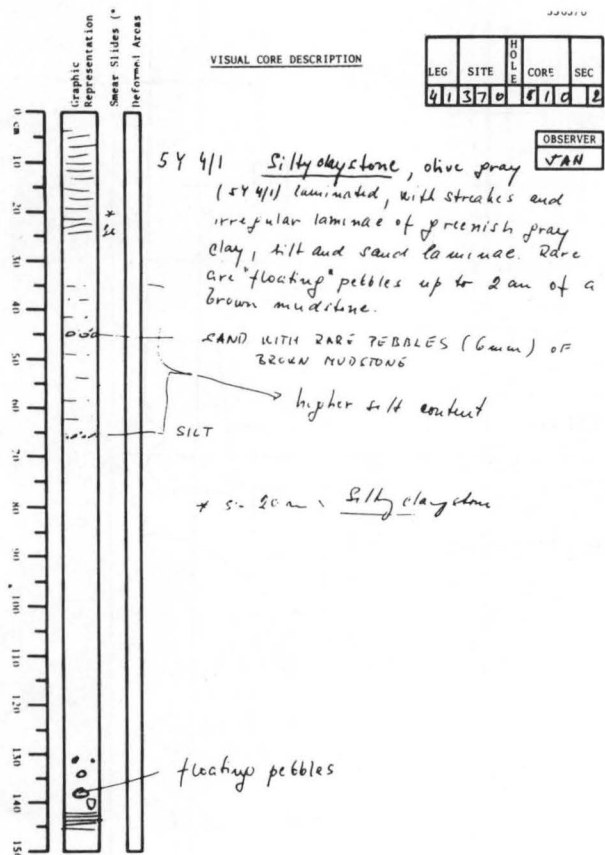 VISUAL CORE DESCRIPTION
Graphic
Representation
Smear Slides (*
Deformed Areas
LEG SITE HOLE CORE SEC
4 1 3 7 0 0 2
OBSERVER
JAN
0 cm
10
20
30
40
50
60
70
80
90
100
110
120
130
140
150
*
5Y 4/1 Silty claystone, olive gray
(5Y 4/1) laminated, with streaks and
irregular laminae of greenish gray
clay, silt and sand laminae. Rare
are "floating" pebbles up to 2 cm of a
brown mudstone.
SAND WITH RARE PEBBLES (6mm) OF
BROWN MUDSTONE
higher silt content
SILT
* Silty claystone
floating pebbles